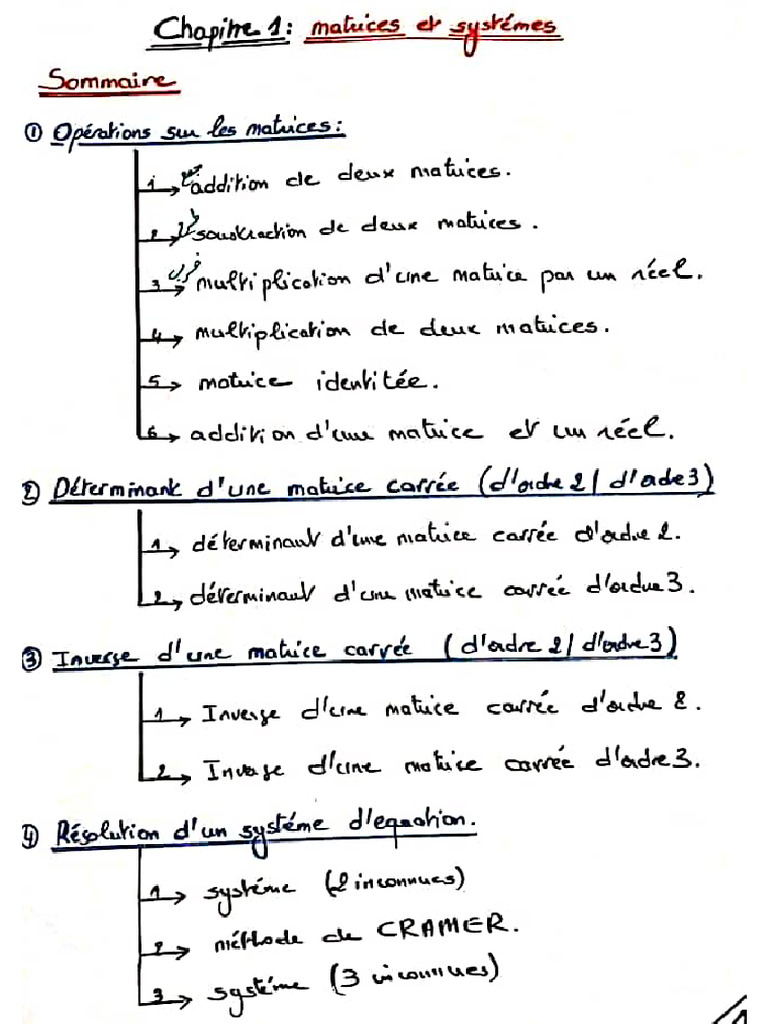 Chapitre 1: matrices et systémes
Sommaire
① Opérations sur les matrices:
1 → addition de deux matrices.
2 → soustraction de deux matrices.
3 → ضرب multiplication d'une matrice par un réel.
4 → multiplication de deux matrices.
5 → matrice identitée.
6 → addition d'une matrice et un réel.
② Déterminant d'une matrice carrée (d'ordre 2 / d'ordre 3)
1 → déterminant d'une matrice carrée d'ordre 2.
2 → déterminant d'une matrice carrée d'ordre 3.
③ Inverse d'une matrice carrée (d'ordre 2 / d'ordre 3)
1 → Inverse d'une matrice carrée d'ordre 2.
2 → Inverse d'une matrice carrée d'ordre 3.
④ Résolution d'un systéme d'equation.
1 → systéme (2 inconnues)
2 → méthode de CRAMER.
3 → systéme (3 inconnues)